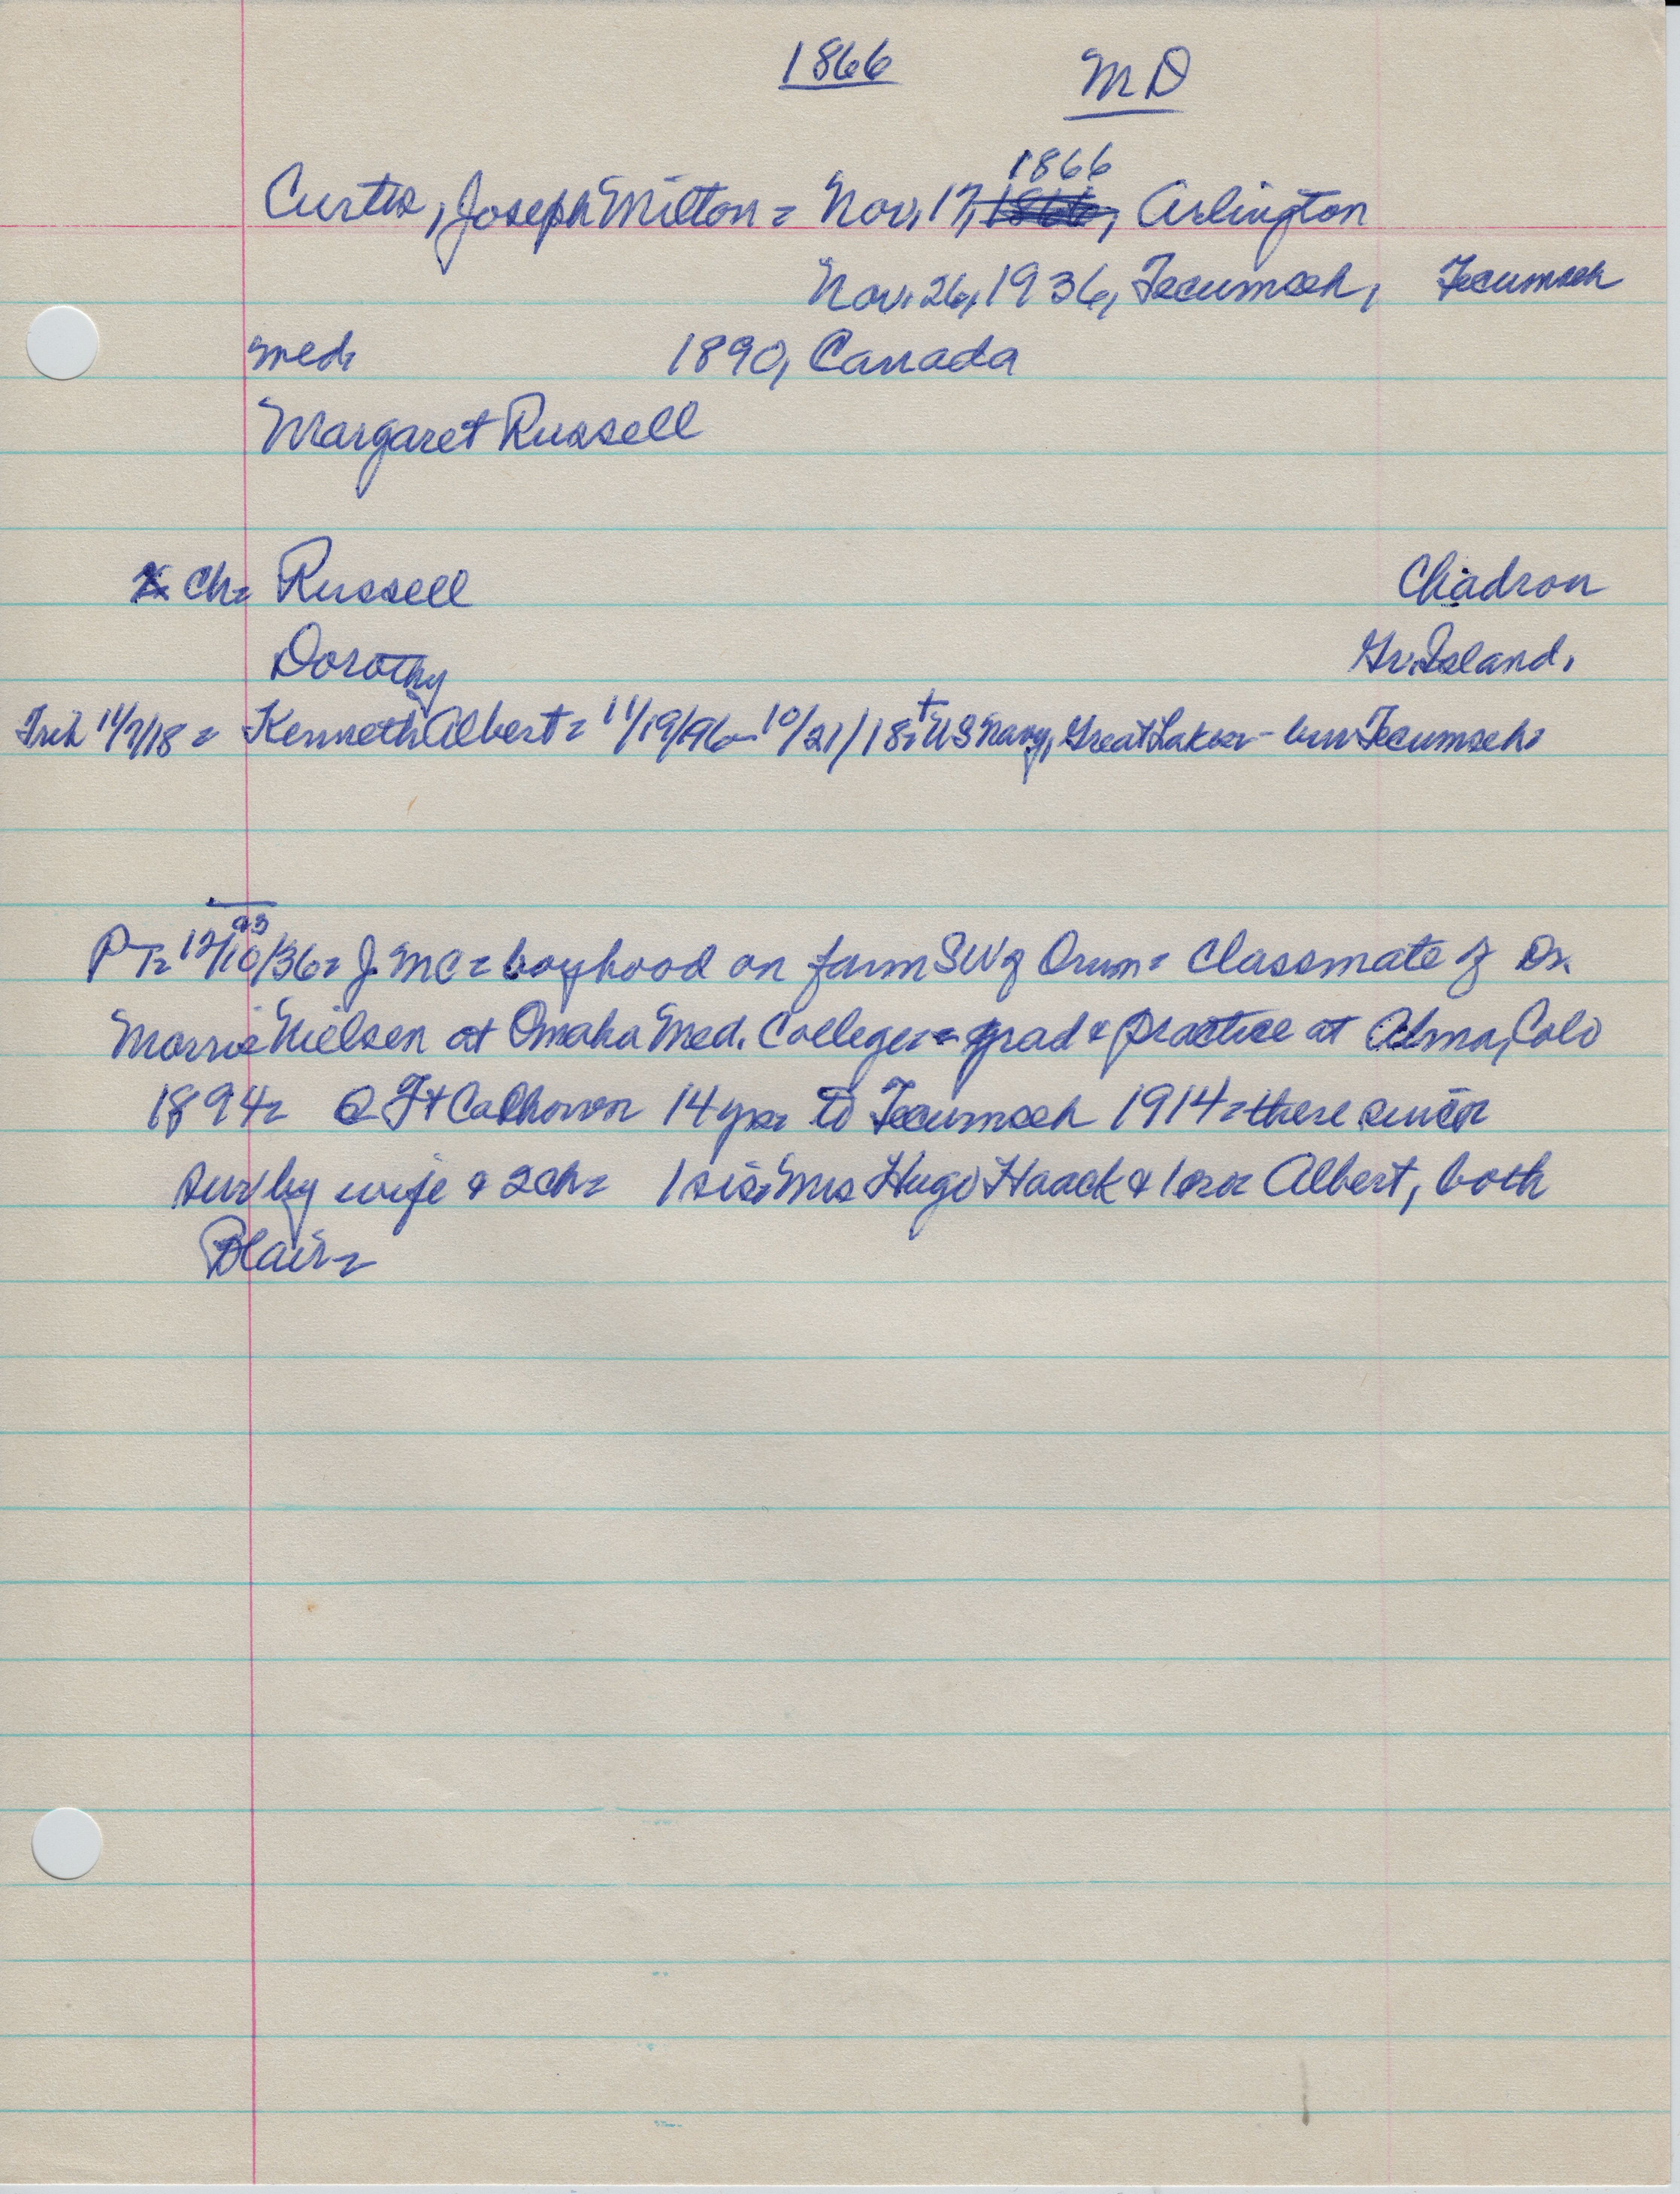 1866 MD
1866
Curtis, Joseph Milton = Nov. 17, 1866, Arlington
Nov. 26, 1936, Tecumseh, Tecumseh
med. 1890, Canada
Margaret Russell
X Ch = Russell Chadron
Dorothy Gr. Island.
Trib 11/7/18 = Kenneth Albert = 11/19/96 - 10/21/18 = + US Navy, Great Lakes - bur Tecumseh =
PT = 12/10/36 = J MC = boyhood on farm SW of Orum = Classmate of Dr.
Morris Nielsen at Omaha Med. College = grad & practice at Alma, Colo
1894 = @ Ft Calhoun 14 yrs = to Tecumseh 1914 = there since
sur by wife & 2 ch = 1 sis = Mrs Hugo Haack & 1 bro = Albert, both
Blair =